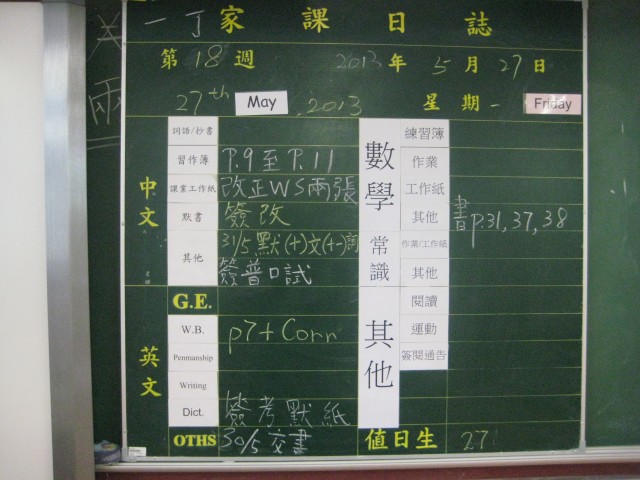 一丁家課日誌
第18週 2013年5月27日
27th May, 2013 星期一 Friday
中文
詞語/抄書
習作簿 P.9至P.11
課室工作紙 改正WS兩張
默書 簽改
其他 31/5默(十)文(十一)詞
簽普口試
英文
G.E.
W.B. p7+Corr
Penmanship
Writing
Dict. 簽考默紙
OTHS 30/5交書
數學
練習簿
作業
工作紙
其他 書p.31,37,38
常識
作業/工作紙
其他
其他
閱讀
運動
簽閱通告
值日生 27
兩